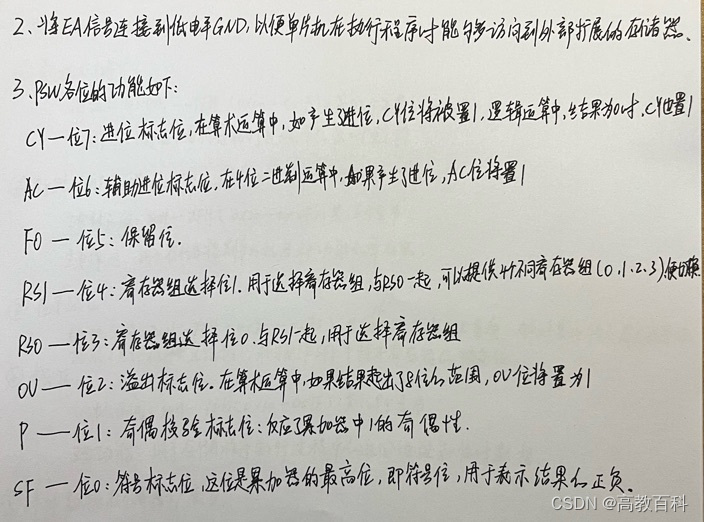 2、将EA信号连接到低电平GND,以便单片机在执行程序时能够访问到外部扩展的存储器、
3.PSW各位的功能如下:
CY—位7:进位标志位,在算术运算中,如产生了进位,CY位将被置1,逻辑运算中,结果为0时,CY也置1
AC—位6:辅助进位标志位,在4位二进制运算中,如果产生了进位,AC位将置1
F0—位5:保留位.
RS1—位4:寄存器组选择位1.用于选择寄存器组,与RS0一起,可以提供4个不同寄存器组(0.1.2.3)
RS0—位3:寄存器组选择位0.与RS1一起,用于选择寄存器组
OV—位2:溢出标志位。在算术运算中,如果结果超出了8位的范围,OV位将置为1
P—位1:奇偶校验标志位:反应了累加器中1的奇偶性.
SF—位0:符号标志位,这位是累加器的最高位,即符号位,用于表示结果的正负、
CSDN @高教百科